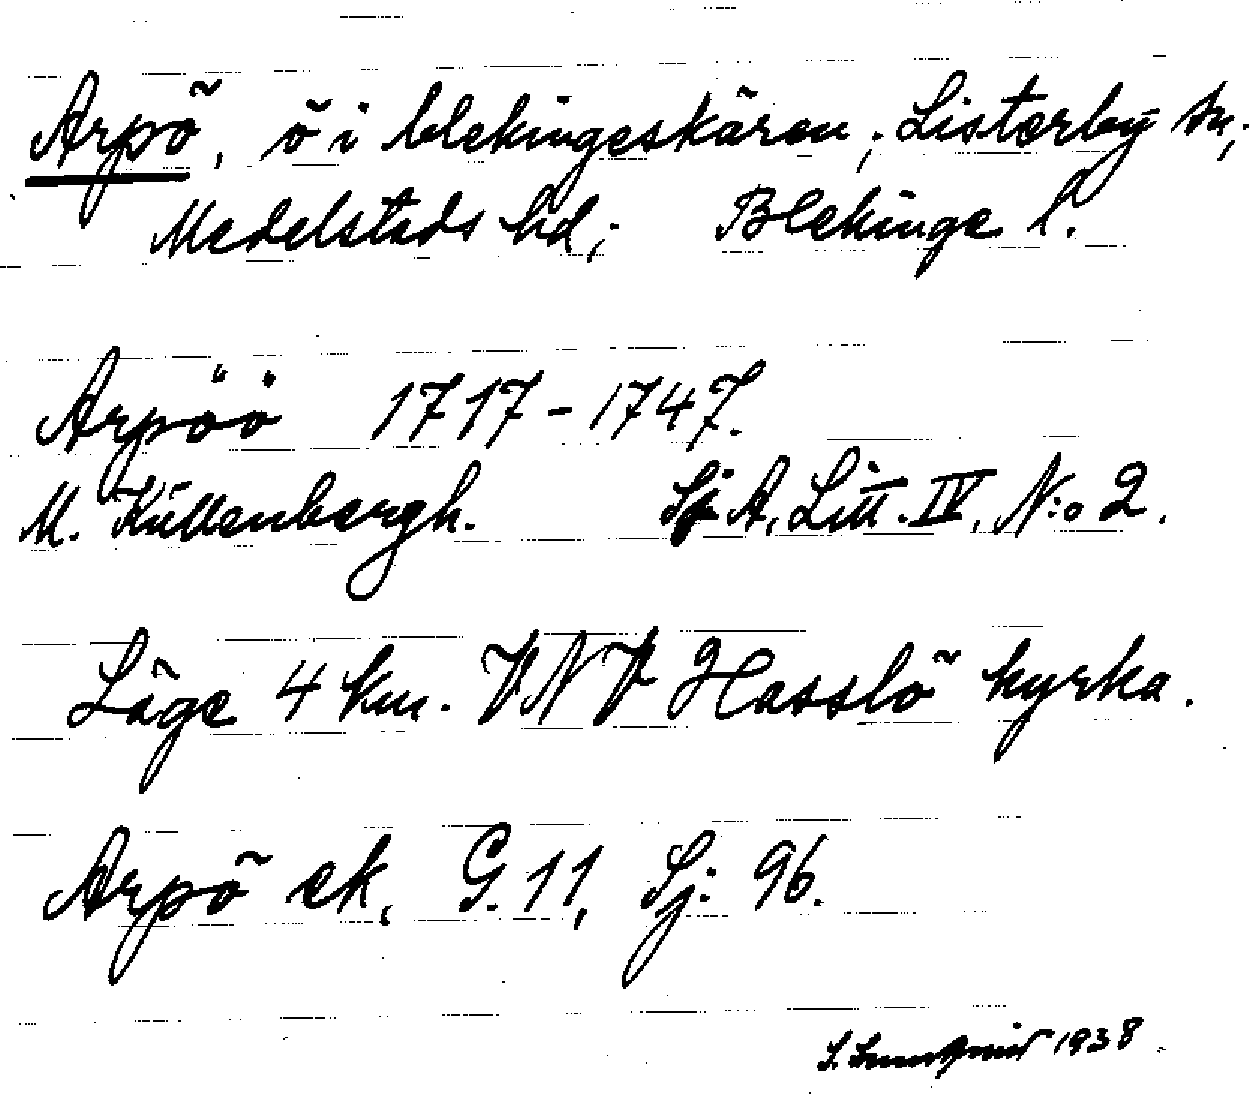 Arpö, ö i blekingeskären; Listerby sn,
Medelstads hd; Blekinge l.
Arpöö 1717-1747.
M. Küllenbergh. Sj A, Litt. IV, N:o 2.
Läge 4 km. VNV Hasslö kyrka.
Arpö ek, G. 11, Sj: 96.
S. 1938